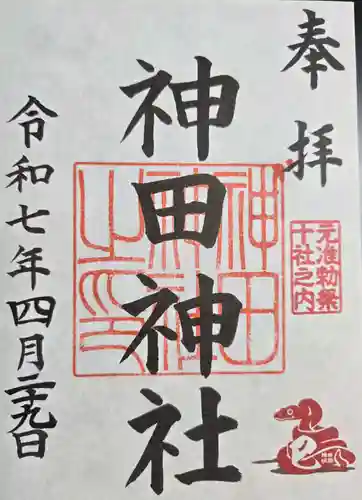 奉拝
元准勅祭
十社之内
神田神社
神田神社之印
令和七年四月二十九日